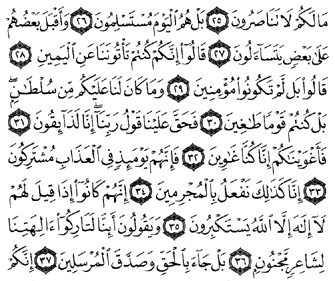 مَا لَكُمْ لَا تَنَاصَرُونَ ﴿٢٥﴾ بَلْ هُمُ الْيَوْمَ مُسْتَسْلِمُونَ ﴿٢٦﴾ وَأَقْبَلَ بَعْضُهُمْ
عَلَى بَعْضٍ يَتَسَاءَلُونَ ﴿٢٧﴾ قَالُوا إِنَّكُمْ كُنْتُمْ تَأْتُونَنَا عَنِ الْيَمِينِ ﴿٢٨﴾
قَالُوا بَلْ لَمْ تَكُونُوا مُؤْمِنِينَ ﴿٢٩﴾ وَمَا كَانَ لَنَا عَلَيْكُمْ مِنْ سُلْطَانٍ
بَلْ كُنْتُمْ قَوْمًا طَاغِينَ ﴿٣٠﴾ فَحَقَّ عَلَيْنَا قَوْلُ رَبِّنَا إِنَّا لَذَائِقُونَ ﴿٣١﴾
فَأَغْوَيْنَاكُمْ إِنَّا كُنَّا غَاوِينَ ﴿٣٢﴾ فَإِنَّهُمْ يَوْمَئِذٍ فِي الْعَذَابِ مُشْتَرِكُونَ
﴿٣٣﴾ إِنَّا كَذَلِكَ نَفْعَلُ بِالْمُجْرِمِينَ ﴿٣٤﴾ إِنَّهُمْ كَانُوا إِذَا قِيلَ لَهُمْ
لَا إِلَهَ إِلَّا اللَّهُ يَسْتَكْبِرُونَ ﴿٣٥﴾ وَيَقُولُونَ أَئِنَّا لَتَارِكُو آلِهَتِنَا
لِشَاعِرٍ مَجْنُونٍ ﴿٣٦﴾ بَلْ جَاءَ بِالْحَقِّ وَصَدَّقَ الْمُرْسَلِينَ ﴿٣٧﴾ إِنَّكُمْ